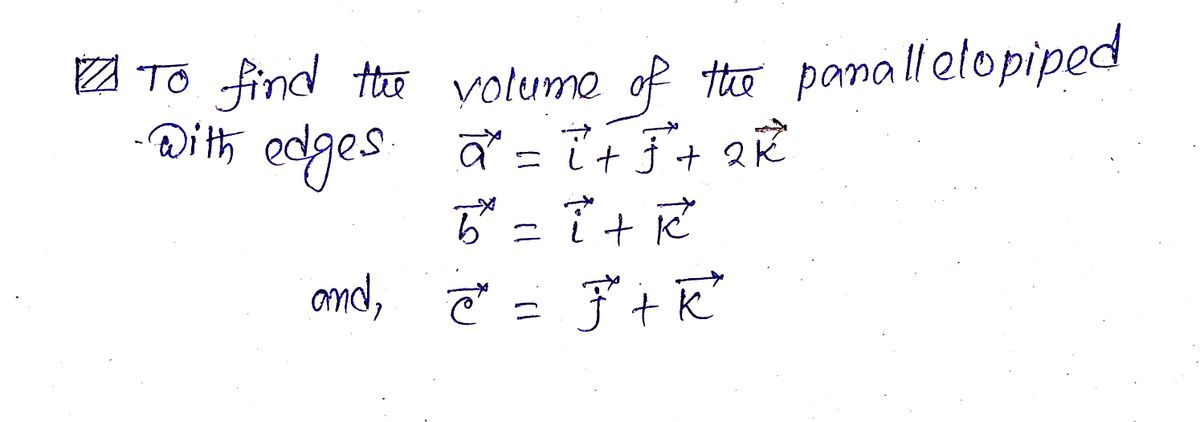 To find the volume of the parallelopiped
With edges a⃗ = i⃗ + j⃗ + 2k⃗
b⃗ = i⃗ + k⃗
and, c⃗ = j⃗ + k⃗